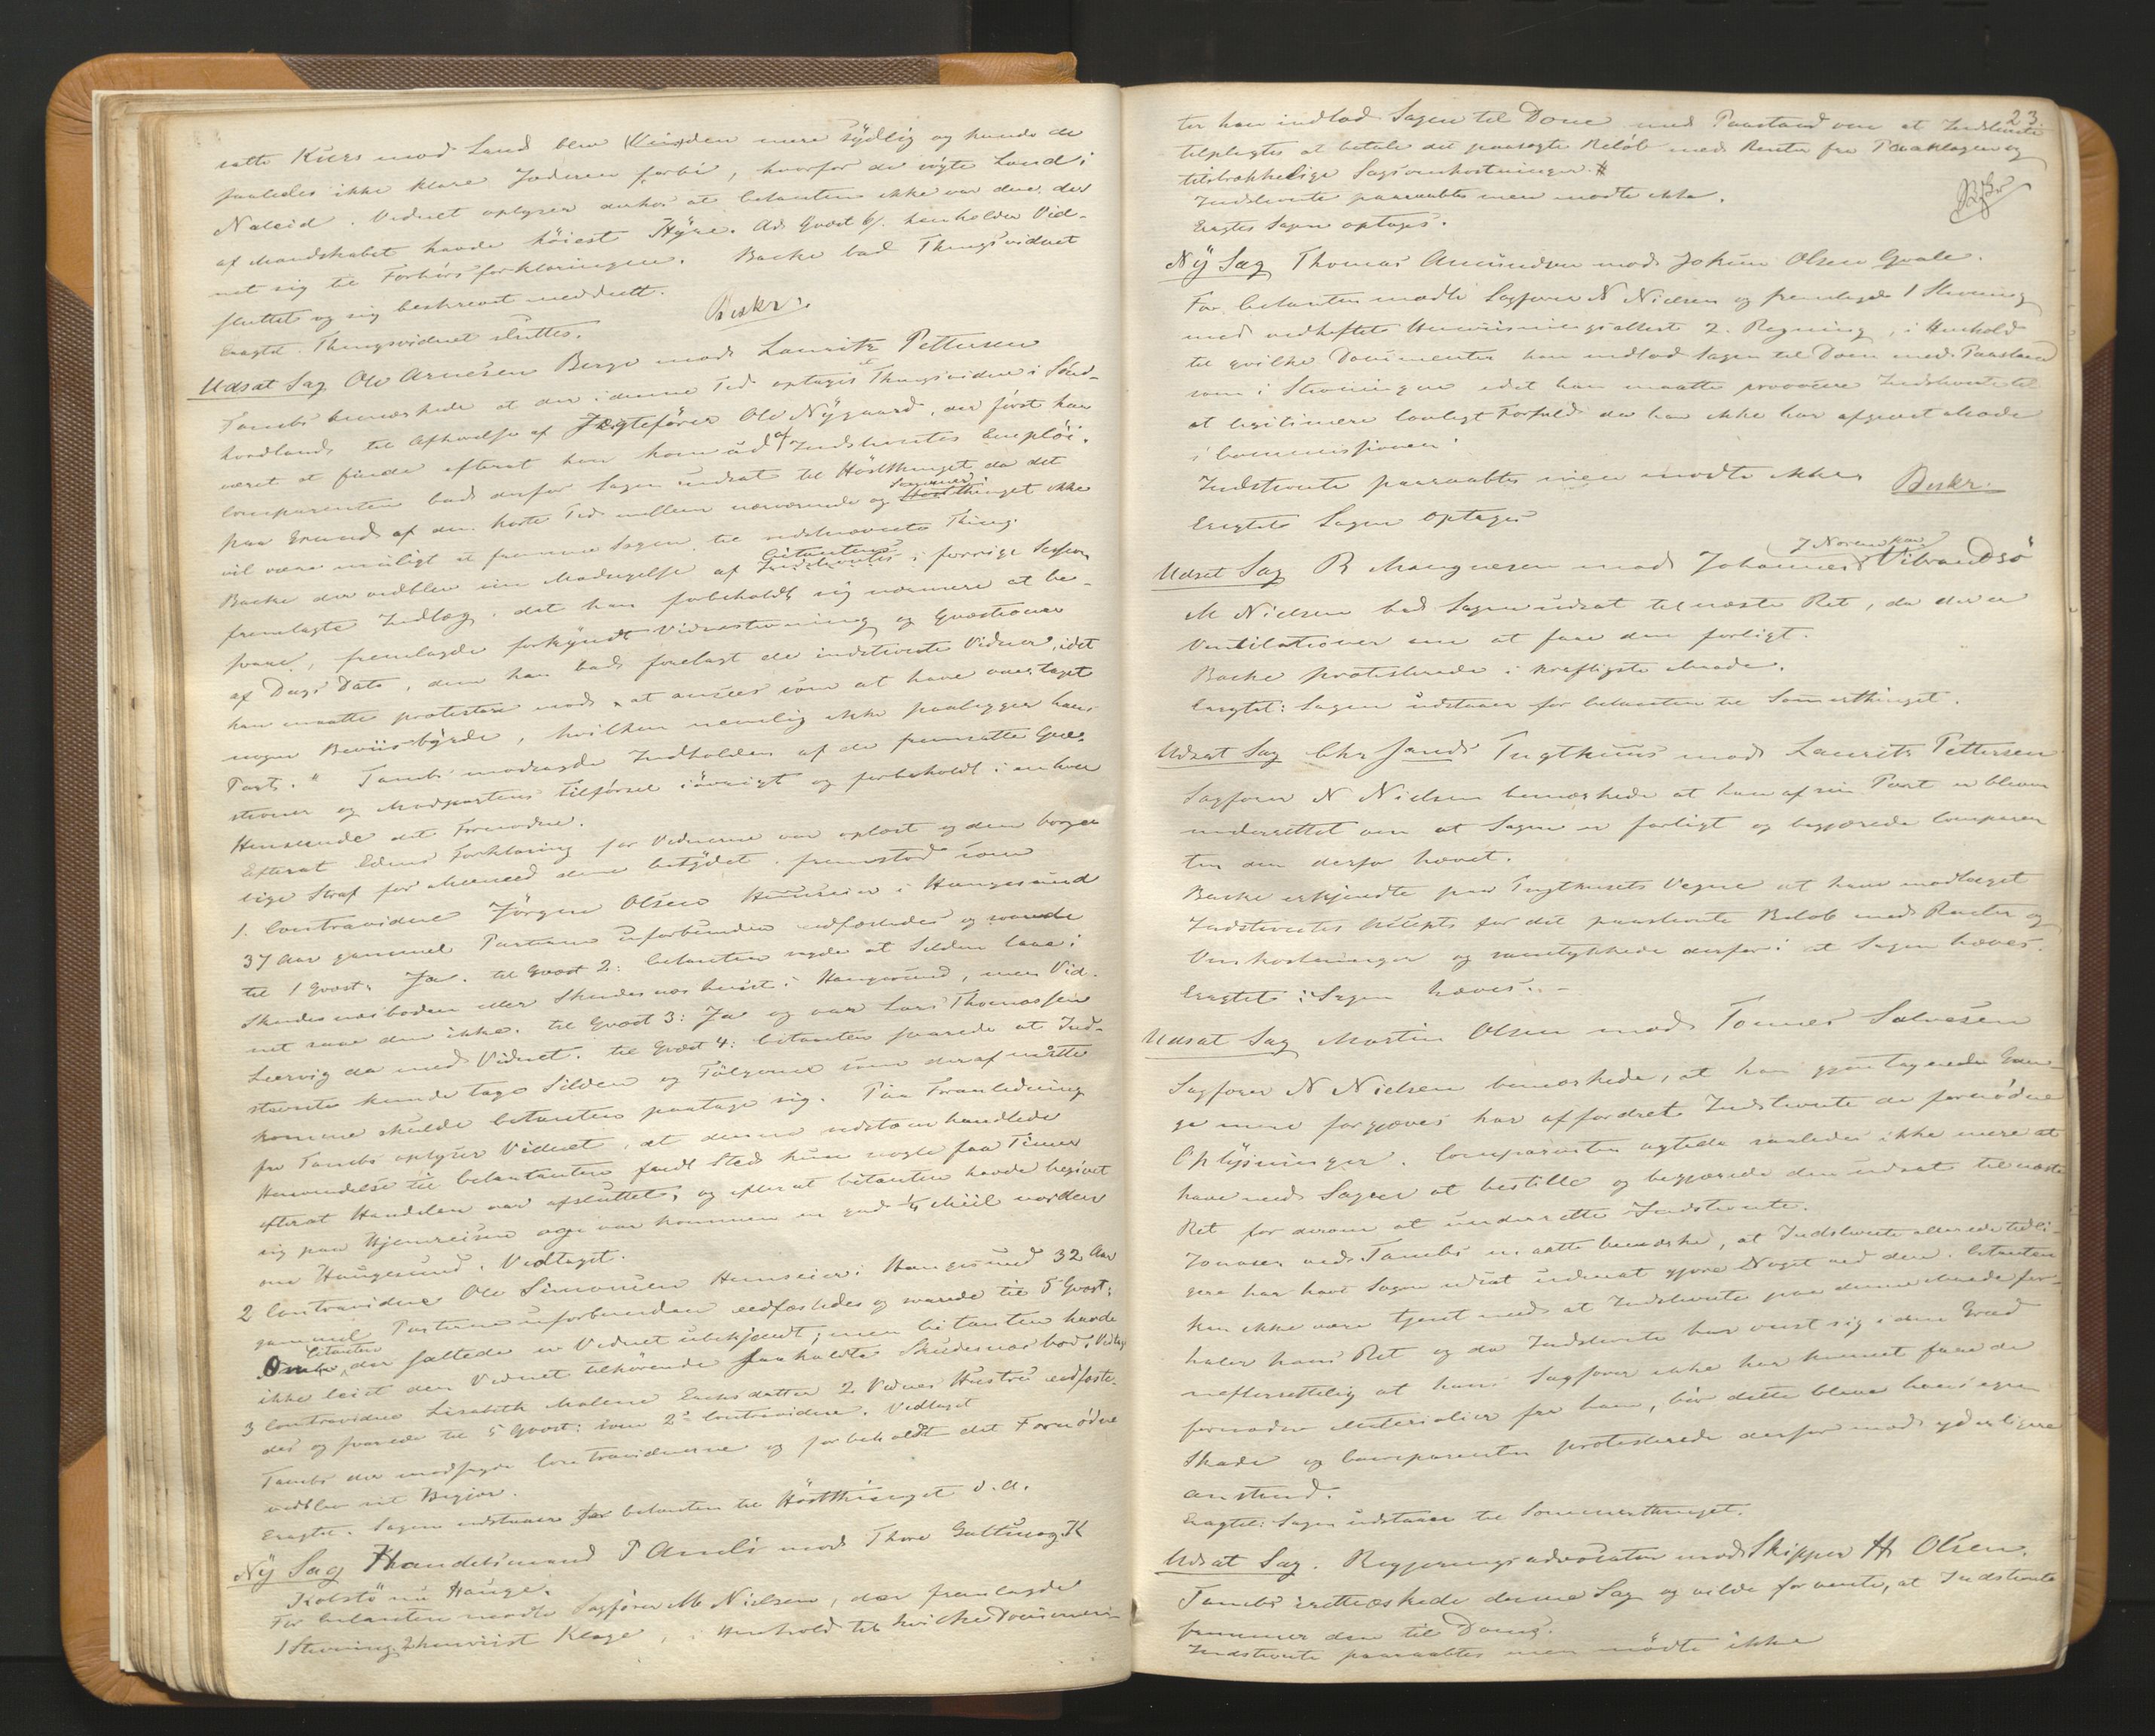 satte Kurs mod Land blev Vinden mere sydlig og kunde de
saaledes ikke klare Jæderen forbi, hvorfor de søgte Land i
Naleid. Vidnet oplyser derhos at Citanten ikke var den der
af Mandskabet havde høiest Hyre. Ad Qvæst 6/. henholder Vid-
net sig til Forhørsforklaringen. Backe bad Thingsvidnet
sluttet og sig beskrevet meddeelt.
Eragtet. Thingsvidnet sluttes. Beskr.
Udsat Sag Ole Arnesen Berge mod Lauritz Pettersen
Tambs bemærkede at der i denne Tid optages Thingsvidne i Sønd-
hordland til Afhørelse af Jægtefører Ole Nygaard, der først har
været at finde efterat han kom ud af Indstevntes Emploi.
Comparenten bad derfor Sagen udsat til Høstthinget da det
paa Grund af den korte Tid mellem nærværende og Sommerthinget ikke
vil være muligt at fremme Sagen til sidstnævnte Thing.
Backe der vedblev sin Modsigelse af Citantens i forrige Session
fremlagte Indlæg, det han forbeholdt sig nærmere at be-
svare, fremlagde forkyndt Vidnestevning og Qvæstioner
af Dags Dato, dem han bad forelagt de indstevnte Vidner, idet
han maatte protestere mod at ansees som at have overtaget
nogen Beviisbyrde, hvilken nemlig ikke paaligger hans
Part. Tambs modsagde Indholden af de fremsatte Qvæ-
stioner og Modpartens Tilførsel iøvrigt og forbeholdt i enhver
Henseende det Fornødne.
Efterat Edens Forklaring for Vidnerne var oplæst og den borger
lige Straf for Meened dem betydet, fremstod som
1. Contravidne Jørgen Olsen Huuseier i Haugesund
37 Aar gammel Parterne uforbunden edfæstedes og svarede
til 1 Qvæst. Ja. til Qvæst 2: Citanten sagde at Silden laae i
Skudesnæsboden eller Skudesnæshuset i Haugesund, men Vid-
net saae den ikke. til Qvæst 3: Ja og var Lars Thomassen
Leervig da med Vidnet. til Qvæst 4: Citanten svarede at Ind-
stevnte kunde tage Silden og Følgerne som deraf måtte
komme skulde Citanten paatage sig. Paa Foranledning
fra Tambs oplyser Vidnet, at denne sidstomhandlede
Henvendelse til Citanten fandt Sted kun nogle faa Timer
efterat Handelen var afsluttet, og efterat Citanten havde begivet
sig paa Hjemreisen og var kommen en god ¼ Miil norden
om Haugesund. Vedtaget.
2 Contravidne Ole Simonsen Huuseier i Haugesund 32 Aar
gammel Parterne uforbunden edfæstedes og svarede til 5 Qvæst:
Om Citanten der saltede er Vidnet ubekjendt; men Citanten havde
ikke leiet den Vidnet tilhørende saakaldte Skudesnæsbod. Vedtag
3 Contravidne Lisabeth Malene Eriksdatter 2 Vidnes Hustru edfæste-
des og svarede til 5 Qvæst: som 2 Contravidne. Vedtaget
Tambs der modsagde Contravidnerne og forbeholdt det Fornødne
vedblev sit Begjær.
Eragtet. Sagen udstaaer for Citanten til Høstthinget d. A.
Ny Sag Handelsmand P Amli mod Thore Guttormsen
Kolstø nu Hauge.
For Citanten mødte Sagfører M Nielsen, der fremlagde
1 Stevning 2 henviist Klage, i Henhold til hvilke Documen-
23.
ter han indlod Sagen til Dom med Paastand om at Indstevnte
tilpligtes at betale det paasøgte Beløb med Renter fra Paaklagen og
tilstrækkelige Sagsomkostninger.
Indstevnte paaraabtes men mødte ikke.
Eragtet Sagen optages. Beskr
Ny Sag Thomas Amundsen mod Jokum Olsen Gvale.
For Citanten mødte Sagfører N Nielsen og fremlagde 1 Stevning
med vedheftet Henviisningsattest 2. Regning, i Henhold
til hvilke Documenter han indlod Sagen til Dom med Paastand
som i Stevningen idet han maatte provocere Indstevnte til
at legitimere lovligt Forfald da han ikke har afgivet Møde
i Commissionen.
Indstevnte paaraabtes men mødte ikke
Eragtet Sagen optages Beskr.
Udsat Sag R Mangnesen mod Johannes Vibrandsø
M Nielsen bad Sagen udsat til næste Ret, da der er
Ventilationer om at faae den forligt.
Backe protesterede i kraftigste Maade.
Eragtet: Sagen udstaaer for Citanten til Somerthinget.
Udsat Sag Chrsands Tugthuus mod Laurits Pettersen
Sagfører N Nielsen bemærkede at han af sin Part er bleven
underrettet om at Sagen er forligt og begjærede Comparen
ten den derfor hævet.
Backe erkjendte paa Tugthusets Vegne at have modtaget
Indstevntes Accept for det paastevnte Beløb med Renter og
Omkostninger og samtykkede derfor i at Sagen hæves.
Eragtet: Sagen hæves.
Udsat Sag Martin Olsen mod Tonnes Salvesen
Sagfører N Nielsen bemærkede, at han gjentagende Gan-
ge men forgjæves har affordret Indstevnte de fornødne
Oplysninger. Comparenten agtede saaledes ikke mere at
have med Sagen at bestille og begjærede den udsat til næste
Ret for derom at underrette Indstevnte.
Jonasen ved Tambs maatte bemærke, at Indstevnte allerede tidli-
gere har havt Sagen udsat uden at gjøre Noget ved den. Citanten
kan ikke være tjent med at Indstevnte paa denne Maade for-
haler hans Ret og da Indstevnte har viist sig i den Grad
uefterrettelig at hans Sagfører ikke har kunnet faae de
fornødne Materialier fra ham, bør dette blive hans egen
Skade og Comparenten protesterede derfor mod yderligere
anstand.
Eragtet: Sagen udstaaer til Sommerthinget.
Udsat Sag. Regjeringsadvokaten mod Skipper H Olsen.
Tambs irettesatte denne Sag og vilde forvente, at Indstevnte
fremmer den til Doms.
Indstevnte paaraabtes men mødte ikke